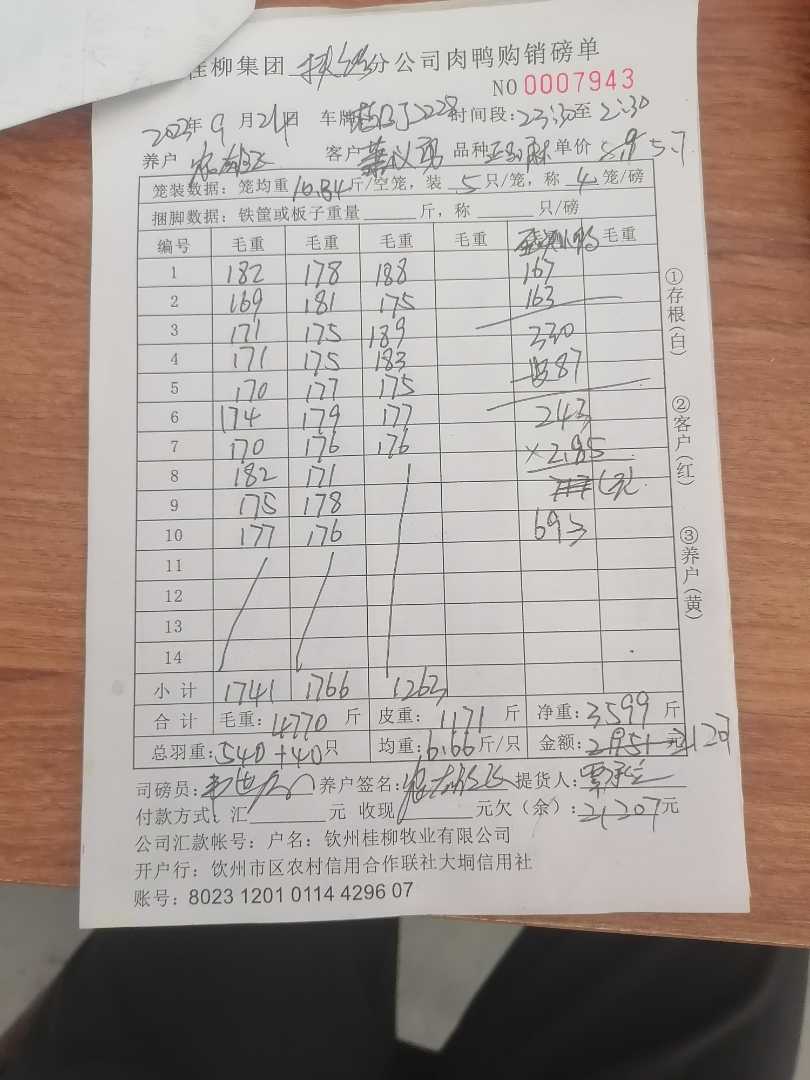 桂柳集团 分公司肉鸭购销磅单
NO 0007943
2023年 9 月 24日 车牌 时间段:23:30至 2:30
养户 客户 品种 单价 5.9 5.7
笼装数据:笼均重 10.84 斤/空笼,装 5 只/笼,称 4 笼/磅
捆脚数据:铁筐或板子重量 斤,称 只/磅
编号 毛重 毛重 毛重 毛重 毛重
1 182 178 188 167
2 169 181 175 163
3 171 175 189 330
4 171 175 183 87
5 170 177 175
6 174 179 177 243
7 170 176 176 ×2.85
8 182 171
9 175 178 693
10 177 176
11
12
13
14
小计 1741 1766 1263
合计 毛重:4770 斤 皮重:1171 斤 净重:3599 斤
总羽重:540+40只 均重:6.66斤/只 金额: 元
司磅员: 养户签名: 提货人:
付款方式:汇 元 收现 元欠(余):21207元
公司汇款帐号:户名:钦州桂柳牧业有限公司
开户行:钦州市区农村信用合作联社大垌信用社
账号:8023 1201 0114 4296 07
①存根(白)
②客户(红)
③养户(黄)